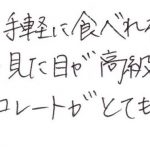 手軽に食べれ
見た目が高級
コレートがとても